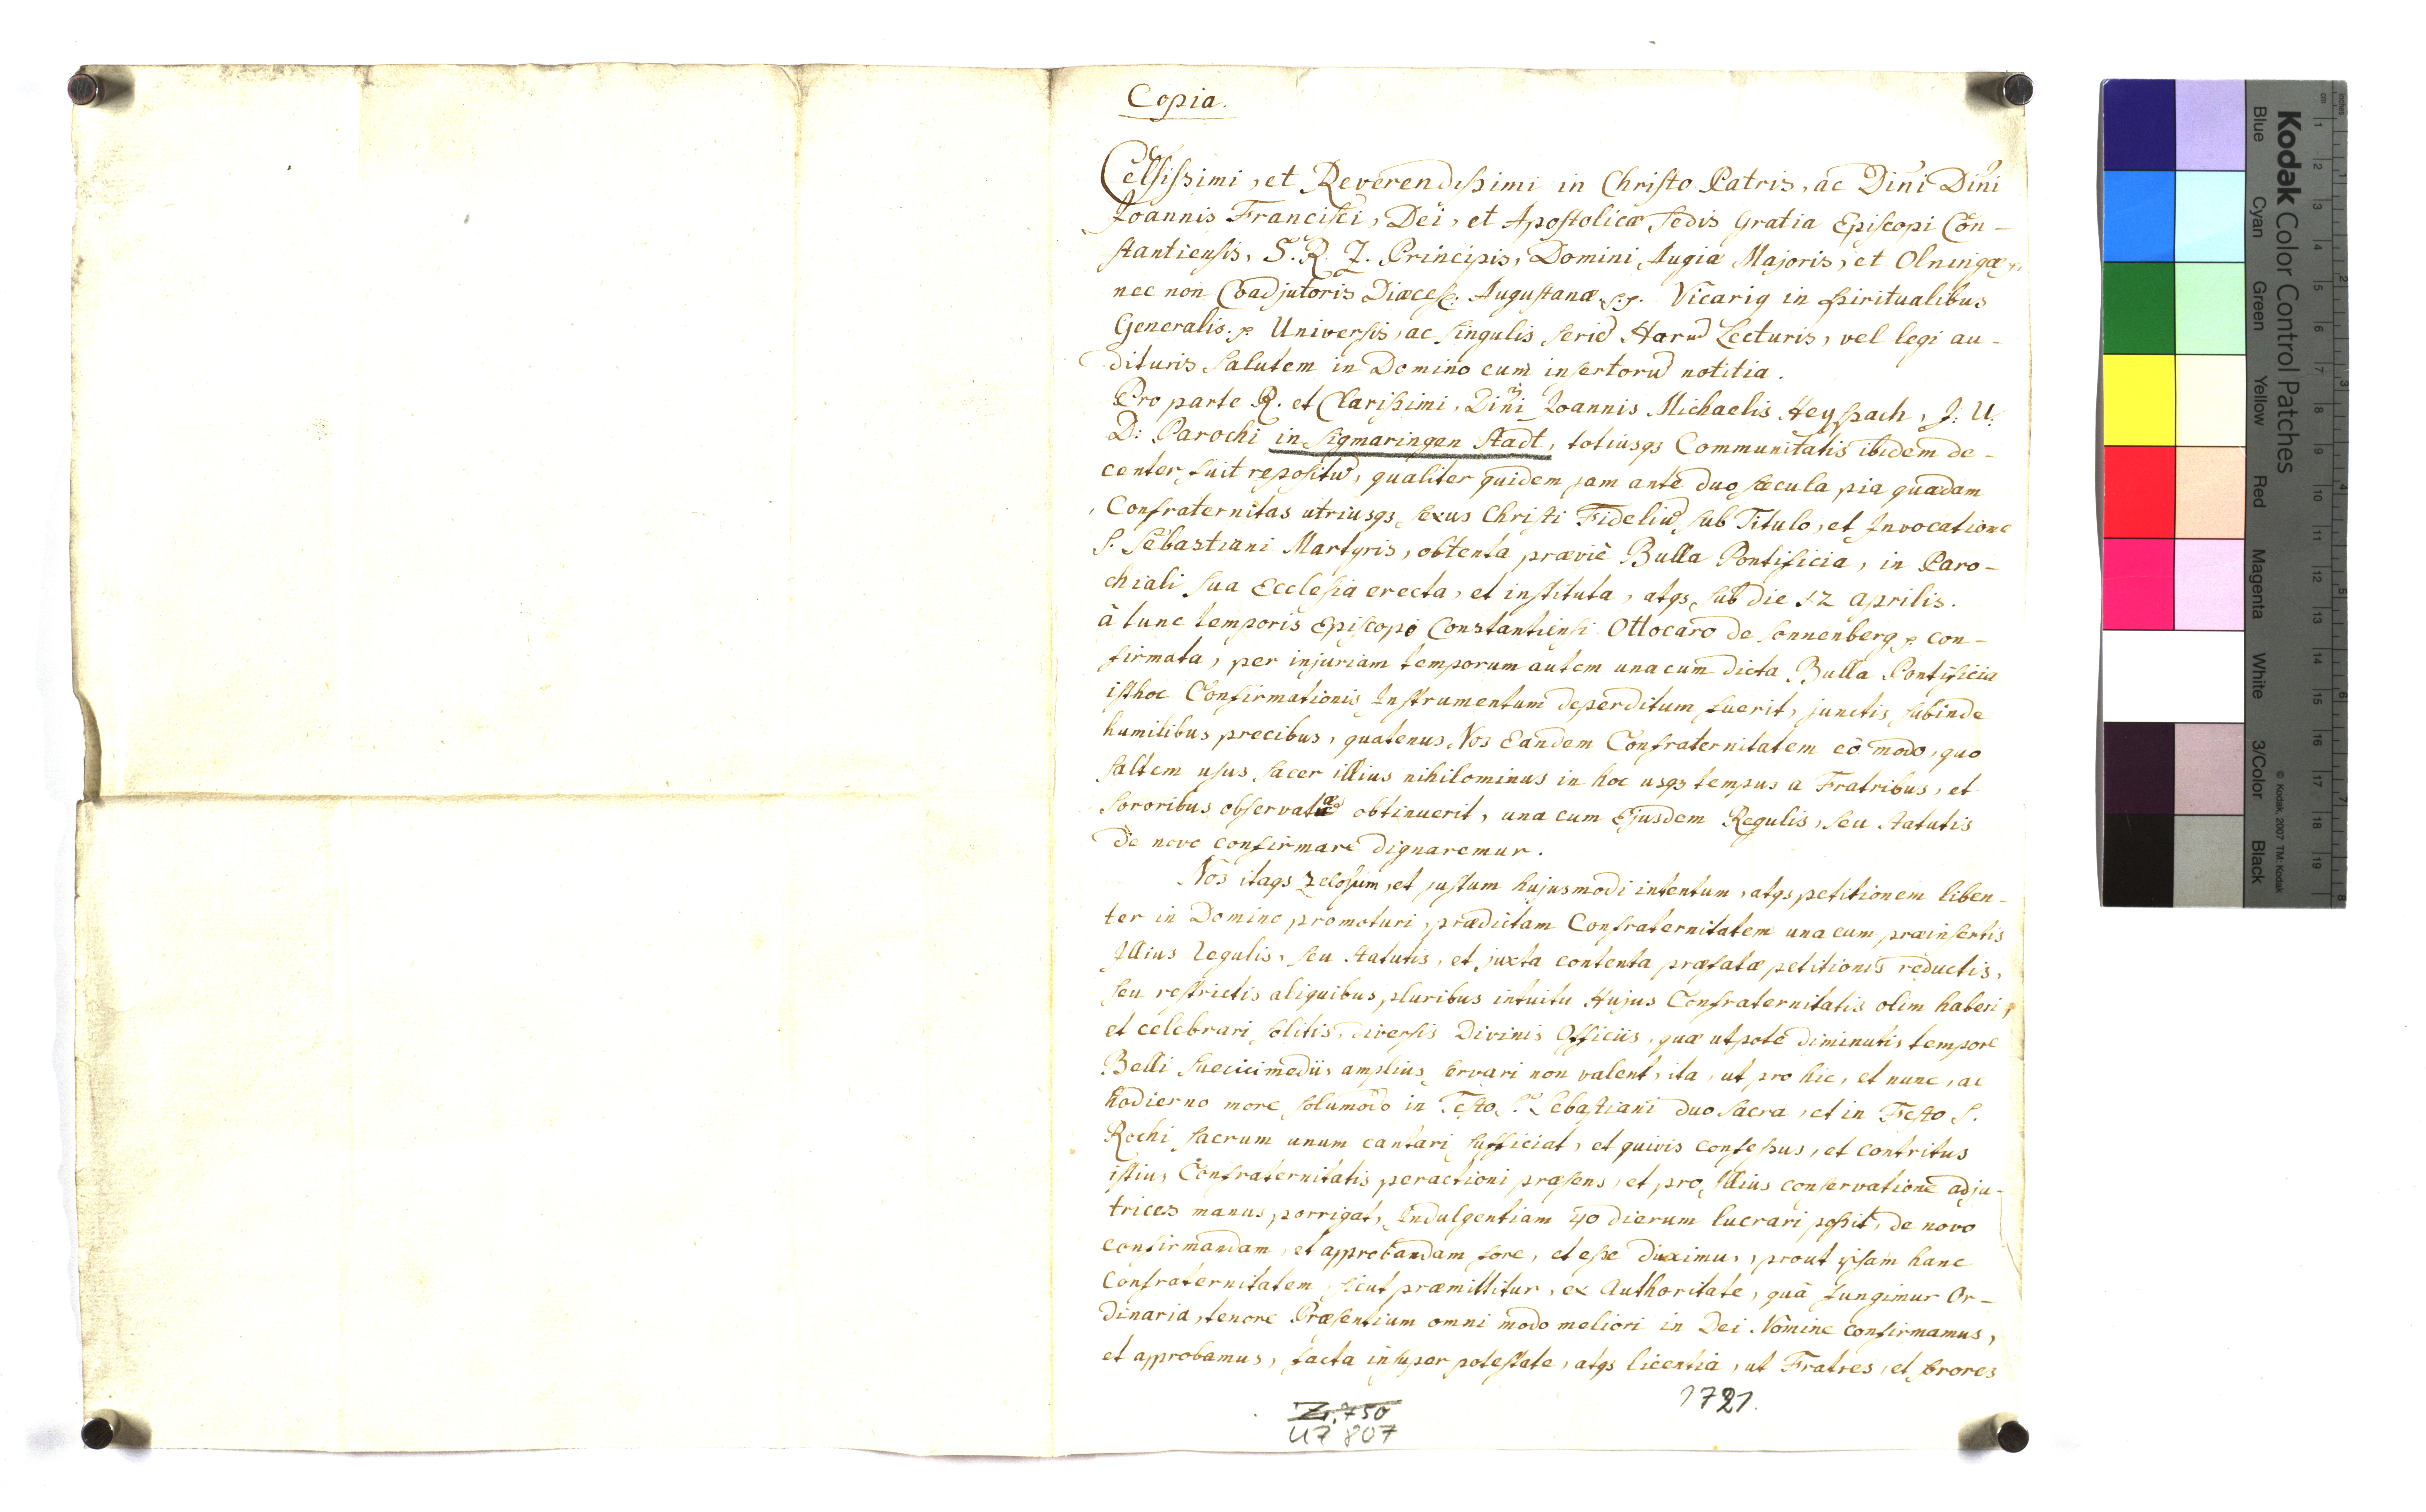 Copia.
Celsissimi, et Reverendissimi in Christo Patris, ac Dn̄i Dn̄i
Joannis Francisci, Dei, et Apostolicæ Sedis Gratia Episcopi Con-
stantiensis, S. R. I. Principis, Domini Augiæ Majoris, et Olningæ
nec non Coadjutoris Diœces: Augustanæ Vicarig in Spiritualibus
Generalis. Universis, ac singulis seriē Harū Lecturis, vel legi au-
dituris Salutem in Domino cum insertorū notitia.
Pro parte R. et Clarissimi, Dn̄i Joannis Michaelis Heyspach, J: U:
D: Parochi in Sigmaringen Stadt, totiusqs Communitatis ibidem de-
center fuit repositū, qualiter quidem jam ante duo sæcula pia quædam
Confraternitas utriusqs sexus Christi Fideliū sub Titulo, et Invocatione
S. Sebastiani Martyris, obtenta prævie Bulla Pontificia, in Paro-
chiali sua Ecclesia erecta, et instituta, atqs sub die 12 aprilis.
à tunc temporis Episcopo Constantiensi Ottocaro de Sonnenberg con-
firmata, per injuriam temporum autem una cum dicta Bulla Pontificia
isthoc Confirmationis Instrumentum deperditum fuerit, junctis subinde
humilibus precibus, quatenus Nos Eandem Confraternitatem eô modo, quo
saltem usus sacer illius nihilominus in hoc usqs tempus a Fratribus, et
Sororibus obtinuerit, una cum Ejusdem Regulis, seu Statutis
de novo confirmare dignaremur.
Nos itaqs zelosum, et justum hujusmodi intentum, atqs petitionem liben-
ter in Domino promoturi, prædictam Confraternitatem una cum præinsertis
Illius Regulis, seu Statutis, et juxta contenta præfatæ petitionis reductis,
seu restrictis aliquibus pluribus intuitu Hujus Confraternitatis olim haberi,
et celebrari solitis, diversis Divinis Officiis, quæ utpote diminutis tempore
Belli Suecici mediis amplius servari non valent, ita, ut pro hic, et nunc, ac
hodierno more solumodo in Festo S. Sebastiani duo Sacra, et in Festo S.
Rochi Sacrum unum cantari sufficiat, et quivis confessus, et contritus
istius Confraternitatis peractioni præsens, et pro Illius conservatione adju-
trices manus porrigat, Indulgentiam 40 dierum lucrari possit, de novo
confirmandam, et approbandam fore, et esse duximus, prout ipsam hanc
Confraternitatem, sicut præmittitur, ex Authoritate, quâ fungimur Or-
dinaria, tenore Præsentium omni modo meliori in Dei Nomine confirmamus,
et approbamus, facta insuper potestate, atqs licentia, ut Fratres, et Sorores
1721.
Z. 750
U7 807
Kodak Color Control Patches
Blue Cyan Green Yellow Red Magenta White 3/Color Black
© Kodak, 2007 TM: Kodak
inches 1 2 3 4 5 6 7 8
cm 1 2 3 4 5 6 7 8 9 10 11 12 13 14 15 16 17 18 19